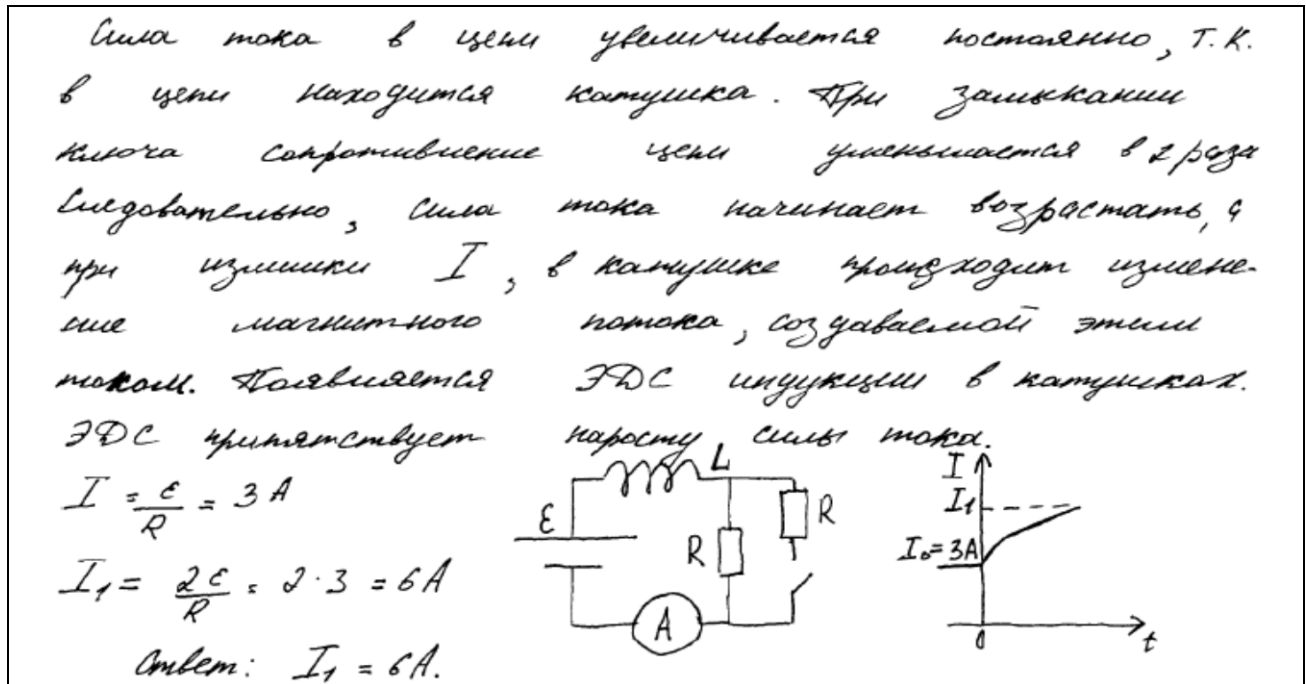 Сила тока в цепи увеличивается постоянно, т.к.
в цепи находится катушка. При замыкании
ключа сопротивление цепи уменьшается в 2 раза
Следовательно, сила тока начинает возрастать, а
при I, в катушке происходит измене-
ние магнитного потока, создаваемой этим
током. Появляется ЭДС индукции в катушках.
ЭДС припятствует наросту силы тока.
I = ε/R = 3 А
I₁ = 2ε/R = 2·3 = 6А
Ответ: I₁ = 6А.
L
ε
R
R
A
I
I₁
I₀=3А
0
t